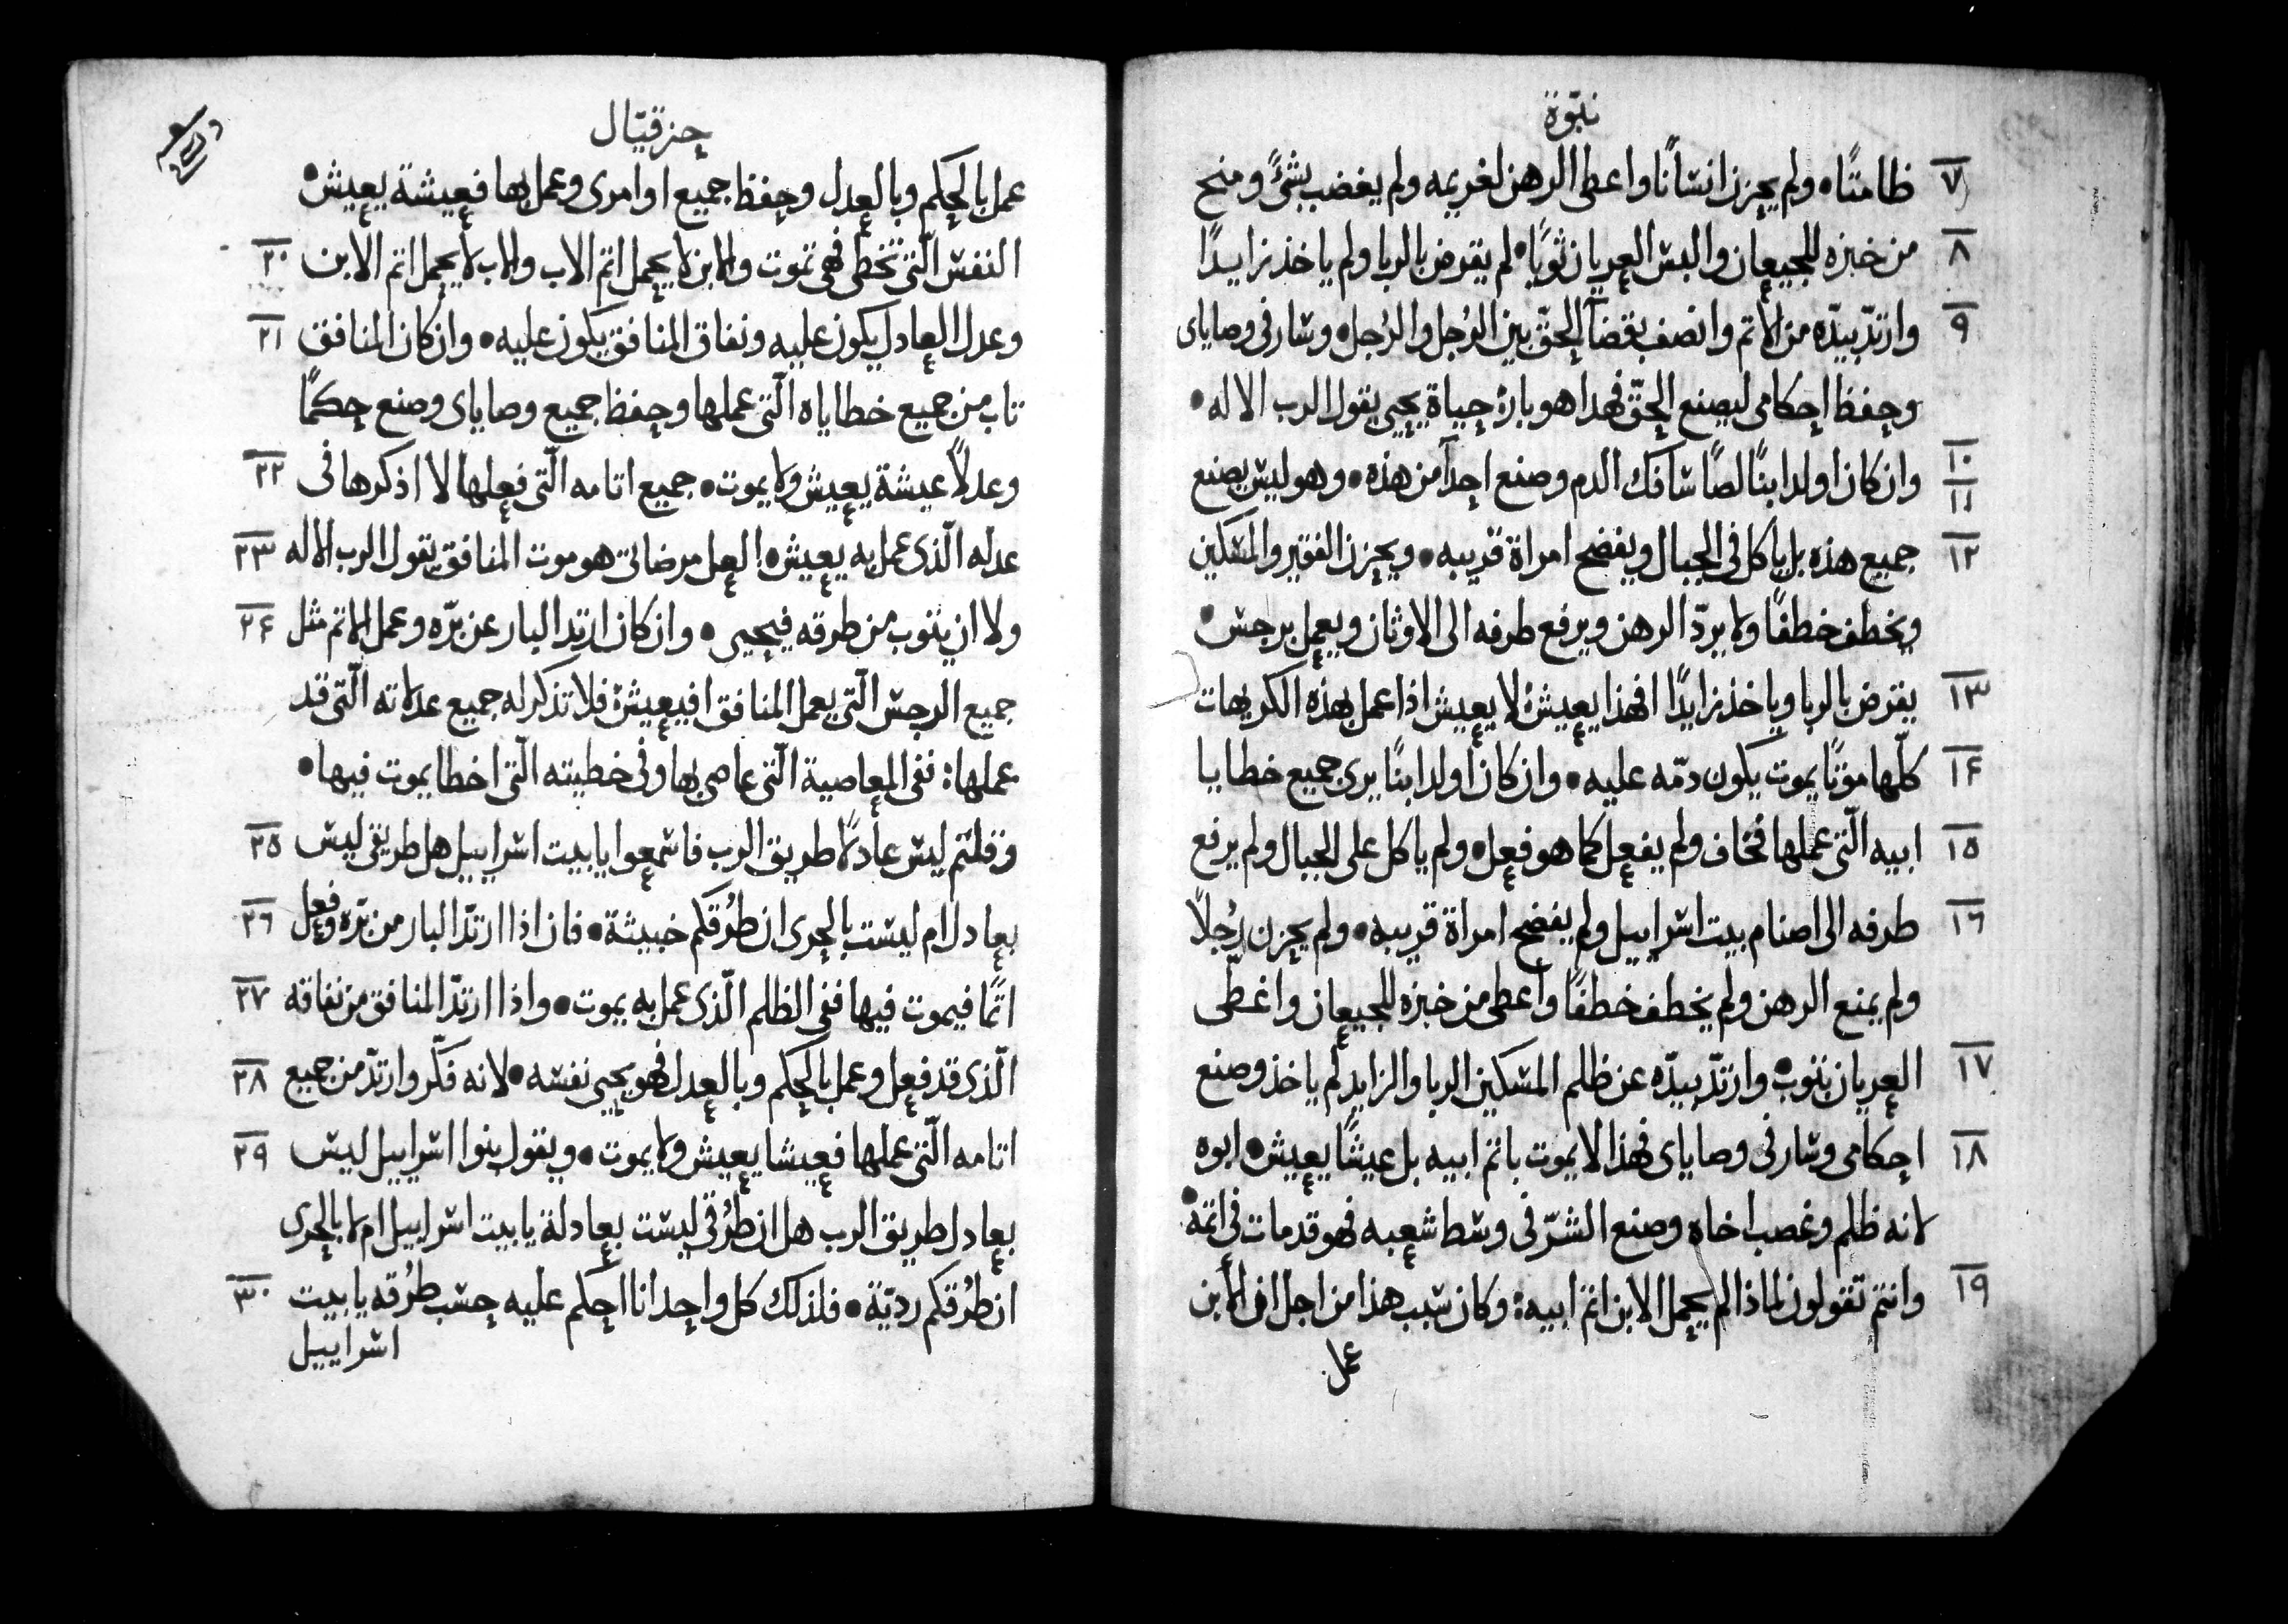 نبوّة
٧ ظامثًا٠ ولم يحزن انسانًا واعطى الرهن لغريمه ولم يغضب بشئً ومنح
٨ من خبزه للجيعان والبس العريان ثوبًا٠ لم يقرض بالربا ولم ياخذ زايدًا
٩ وارتدّ بيدّه من الاثم وانصف بقضآ الحقّ بين الرُجل والرُجل٠ وسار في وصاياى
وحفظ احكامى ليصنع الحقّ فهذا هو بارٌ حياة يحيى يقول الرب الاله٠
١٠ ١١ وان كان اولد ابنًا لصًا سافك الدم وصنع احدآ من هذه٠ وهو ليس يصنع
١٢ جميع هذه بل ياكل في الجبال ويفضح امراة قريبه٠ ويحزن الفقير والمسكين
ويخطف خطفًا ولا يردّ الرهن ويرفع طرفه الى الاوثان ويعمل برجس٠
١٣ يقرض بالربا وياخذ زايدًا افهذا يعيش لا يعيش اذا عمل بهذه الكريهات
١٤ كلّها موتًا يموت يكون دمّه عليه٠ وان كان اولد ابنًا يرى جميع خطايا
١٥ ابيه الّتى عملها فخاف ولم يفعل كما هو فعل٠ ولم ياكل على الجبال ولم يرفع
١٦ طرفه الى اصنام بيت اسراييل ولم يفضح امراة قريبه٠ ولم يحزن رُجلاً
ولم يمنع الرهن ولم يخطف خطفًا واعطى من خبزه للجيعان واغطّى
١٧ العريان بثوب٠ وارتدّ بيدّه عن ظلم المسكين الربا والزايد لم ياخذ وصنع
١٨ احكامى وسار في وصاياى فهذا لا يموت باثم ابيه بل عيشًا يعيش٠ ابوه
لانه ظلم وغصب اخاه وصنع الشرّ في وسط شعبه فهو قد مات في اثمه٠
١٩ وانتم تقولون لماذا لم يحمل الابن اثم ابيه٠ وكان سبب هذا من اجل ان الابن
عمل
حزقيّال
عمل بالحكم وبالعدل وحفظ جميع اوامرى وعمل بها فعيشة يعيش٠
النفس الّتى تخطى فهى تموت والابن لا يحمل اثم الاب والاب لا يحمل اثم الابن ٢٠
وعدل العادل يكون عليه ونفاق المنافق يكون عليه٠ وان كان المنافق ٢١
تاب من جميع خطاياه الّتى عملها وحفظ جميع وصاياى وصنع حكمًا
وعدلاً عيشة يعيش ولا يموت٠ جميع اثامه الّتى فعلها لا اذكرها فى ٢٢
عدله الّذى عمل به يعيش٠ العل مرضاتى هو موت المنافق يقول الرب الاله ٢٣
ولا ان يتوب من طرقه فيحيى٠ وان كان ارتدّ البار عن برّه وعمل الاثم مثل ٢٤
جميع الرجس الّتى يعمل المنافق افيعيش٠ فلا تذكر له جميع عدلاته الّتى قد
عملها٠ ففى المعاصية الّتى عاصى بها وفى خطيته الّتى اخطا يموت فيها٠
وقلتم ليس عادلًا طريق الرب فاسمعوا يا بيت اسراييل هل طريقى ليس ٢٥
بعادل ام ليست بالحرى ان طُرقكم خبيثة٠ فان اذا ارتدّ البار من برّه وفعل ٢٦
اثمًا فيموت فيها ففى الظلم الّذى عمل به يموت٠ واذا ارتدّ المنافق من نفاقه ٢٧
الّذى قد فعل وعمل بالحكم وبالعدل فهو يحيى نفسه٠ لانه فكّر وارتدّ من جميع ٢٨
اثامه الّتى عملها فعيشا يعيش ولا يموت٠ ويقول بنوا اسراييل ليس ٢٩
بعادل طريق الرب هل ان طُرقى ليست بعادلة يا بيت اسراييل ام لا بالحرى
ان طُرقكم رديّة٠ فلذلك كل واحد انا احكم عليه حسب طُرقه يا بيت ٣٠
اسراييل